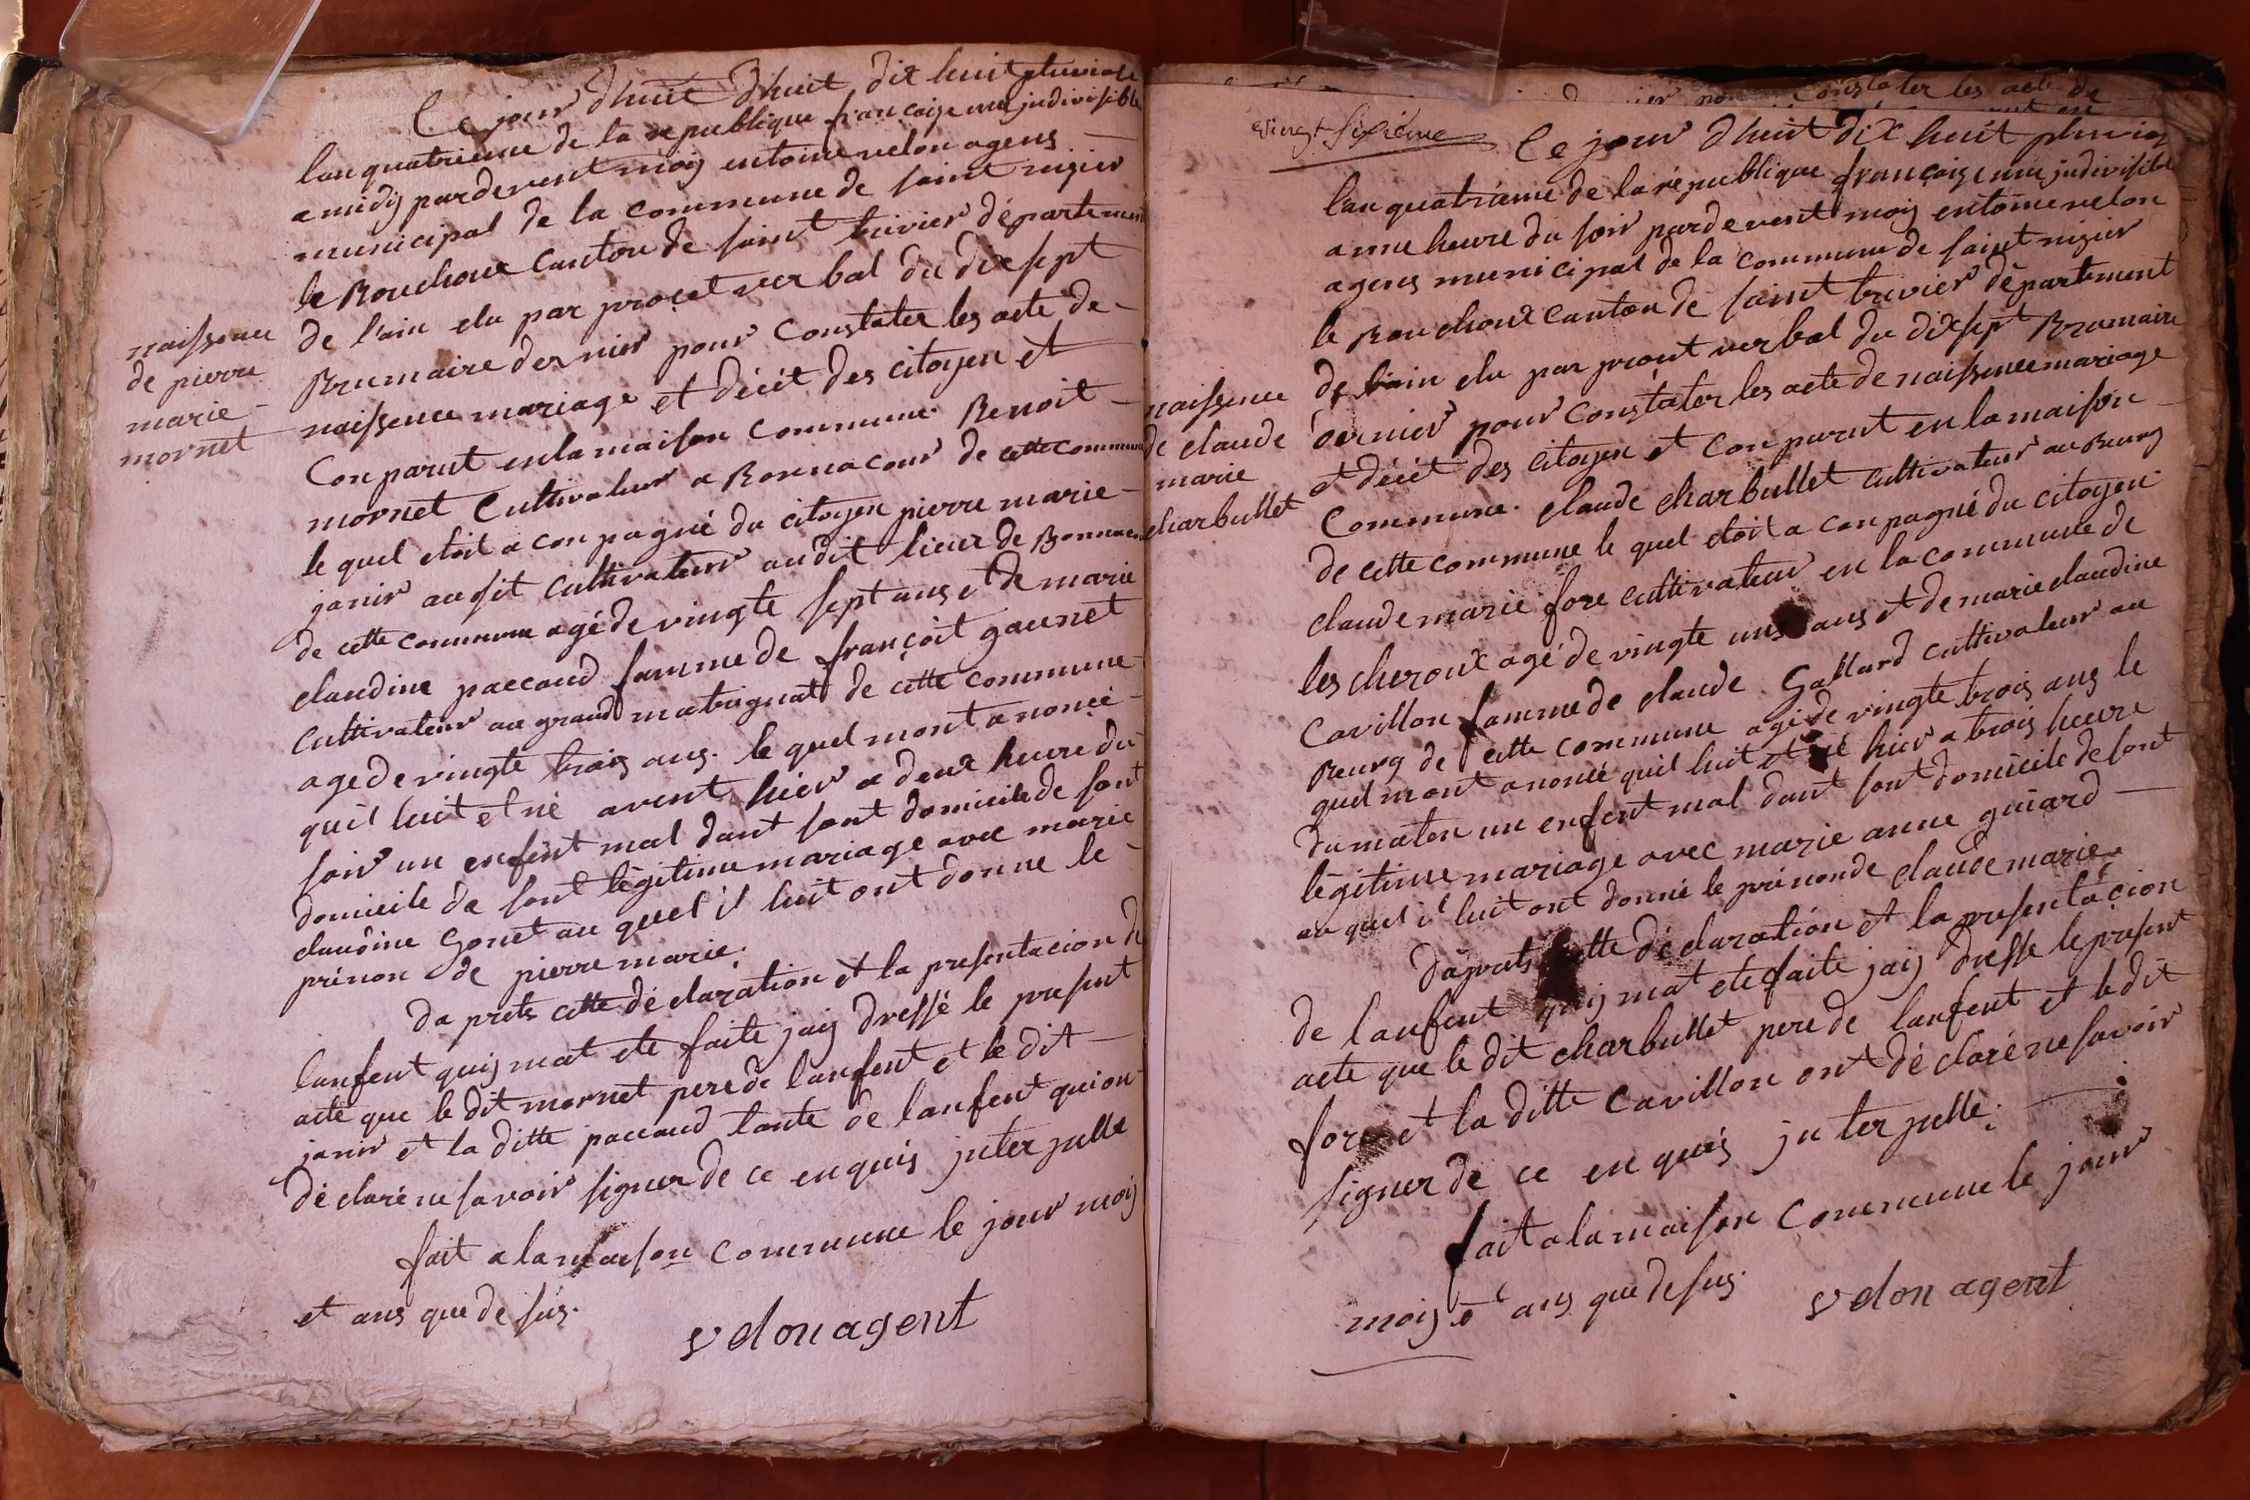 Ce jour d'huit d'huit dix huit pluviose
lan quatrieme de la republique françaize une judivisible
a midij pardevent moij entoine velon agens
municipal de la commune de saint nizier
le Bouchoux canton de saint trivier département
de l'ain elu par proçet verbal du dix sept
Brumaire dernier pour constater les acte de
naissence mariage et décét des citoyen et
Conparut enla maison commune Benoit
mornet Cultivateur a Bonnacour de cette commune
le quel etoit aconpagné du citoyen pierre marie
janir ausit cultivateur audit lieur de Bonnacour
de cette commune agé de vingte sept ans et de marie
claudine paccaud famme de françoit gaunet
cultivateur au grand matrignat de cette commune
age de vingte trois ans. le quel mont anoncé
quil luit et né avent hier a deux heure du
soir un enfent mal dant sont domicile de sont
domicile de sont légitime mariage avec marie
claudine Gonet au quel il luit ont donne le
prénon de pierre marie.
da prets cette déclaration et la presentacion de
lanfent quij mat ete faite jaij dressé le present
acte que le dit mornet pere de lanfent et le dit
janir et la ditte paccaud tante de lanfent quion
déclaré ne savoir signer de ce enquis juterpelle
fait a la maison commune le jour moij
et ans que de sus.
velon agent
naissence
de pierre
marie
mornet
vingt sixiéme
constater les acte de
Ce jour d'huit dix huit pluvios
lan quatriéme de la république françaize une judivisible
a une heure du soir pardevent moij entoine velon
agens municipal de la commune de saint nizier
le Bouchoux canton de saint trivier département
de lain elu par proçet verbal du dix sept Brumaire
dernier pour constater les acte de naissence mariage
et décét des citoyen et conparut en la maison
Commune. claude charbullet cultivateur au Bourg
de cette commune le quel etoit aconpagné du citoyen
claude marie fore cultivateur en la commune de
les cheroux agé de vingte uns ans et de marie claudine
Cavillon famme de claude Gallard cultivateur au
Bourg de cette commune agé de vingte trois ans le
quel mont anoncé quil luit et né hier a trois heure
du maten un enfent mal dant sont domicile de sont
légitime mariage avec marie anne guiard
au quel il luit ont donné le prénon de claude marie
daprets cette déclaration et la presentacion
de lanfent quij mat ete faite jaij dresse le present
acte que le dit charbullet pere de lanfent et le dit
fore et la ditte Cavillon ont déclaré ne savoir
signer de ce enquis juterpelle.
fait a la maison commune le jour
moij et ans que desus.
velon agent
naissence
de claude
marie
charbullet